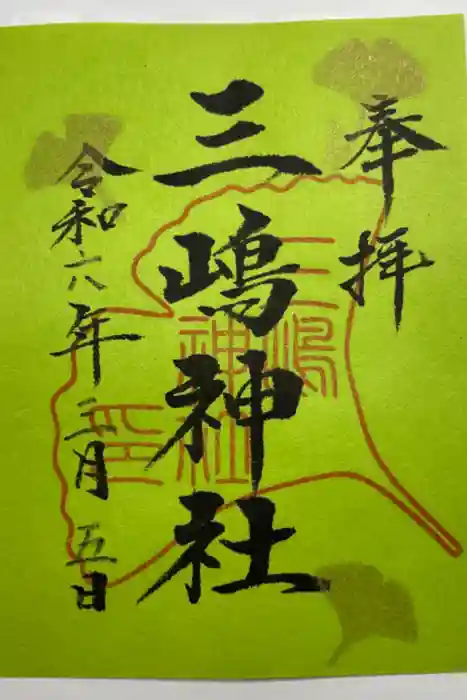 奉拝
三嶋神社
令和六年三月五日
三嶋
神社
印